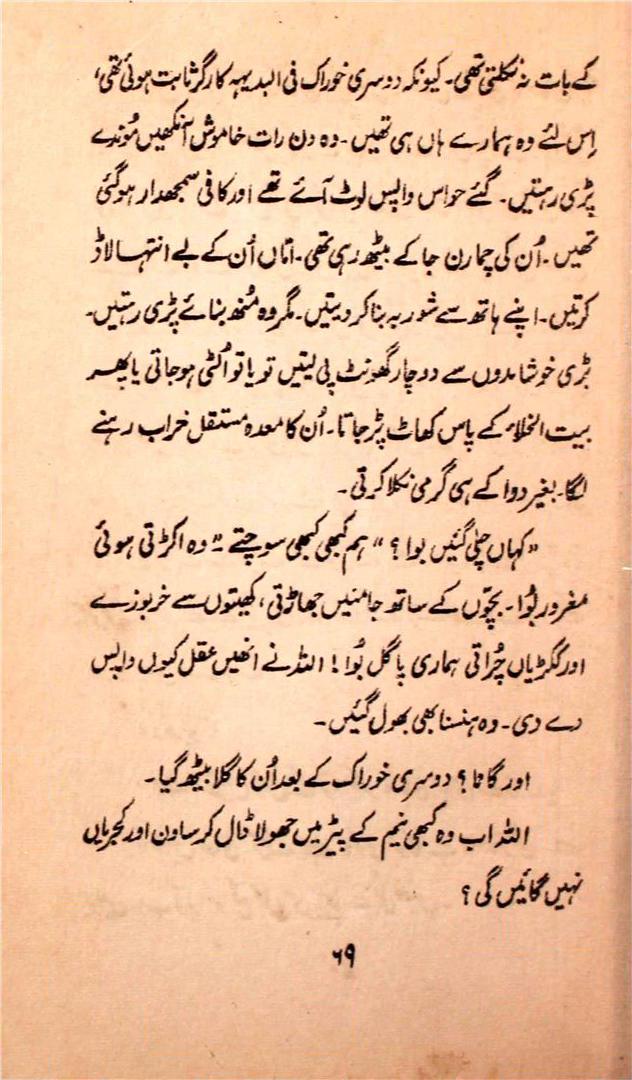 کے بات نہ نکلتی تھی۔ کیونکہ دوسری خوراک فی البدیہہ کارگر ثابت ہوئی تھی،
اِس لئے وہ ہمارے ہاں ہی تھیں۔ وہ دن رات خاموش آنکھیں مُوندے
پڑی رہتیں۔ گئے حواس واپس لوٹ آئے تھے اور کافی سمجھدار ہوگئی
تھیں۔ اُن کی چمارن جا کے بیٹھ رہی تھی۔ اماں اُن کے بے انتہا لاڈ
کرتیں۔ اپنے ہاتھ سے شوربہ بنا کر دیتیں۔ مگر وہ منھ بنائے پڑی رہتیں۔
بڑی خوشامدوں سے دو چار گھونٹ پی لیتیں تو یا تو اُلٹی ہو جاتی یا پھر
بیت الخلاء کے پاس کھاٹ پڑ جاتا۔ اُن کا معدہ مستقل خراب رہنے
لگا۔ بغیر دوا کے ہی گرمی نکلا کرتی۔
"کہاں چلی گئیں بوا؟" ہم کبھی کبھی سوچتے۔ "وہ اکڑتی ہوئی
مغرور بُوا۔ بچوں کے ساتھ جامنیں جھاڑتی، کھیتوں سے خربوزے
اور ککڑیاں چُراتی ہماری پاگل بُوا! اللہ نے انھیں عقل کیوں واپس
دے دی۔ وہ ہنسنا بھی بھول گئیں۔
اور گانا؟ دوسری خوراک کے بعد اُن کا گلا بیٹھ گیا۔
اللہ اب وہ کبھی نیم کے پیڑ میں جھولا ڈال کر ساون اور کجریاں
نہیں گائیں گی؟
۶۹